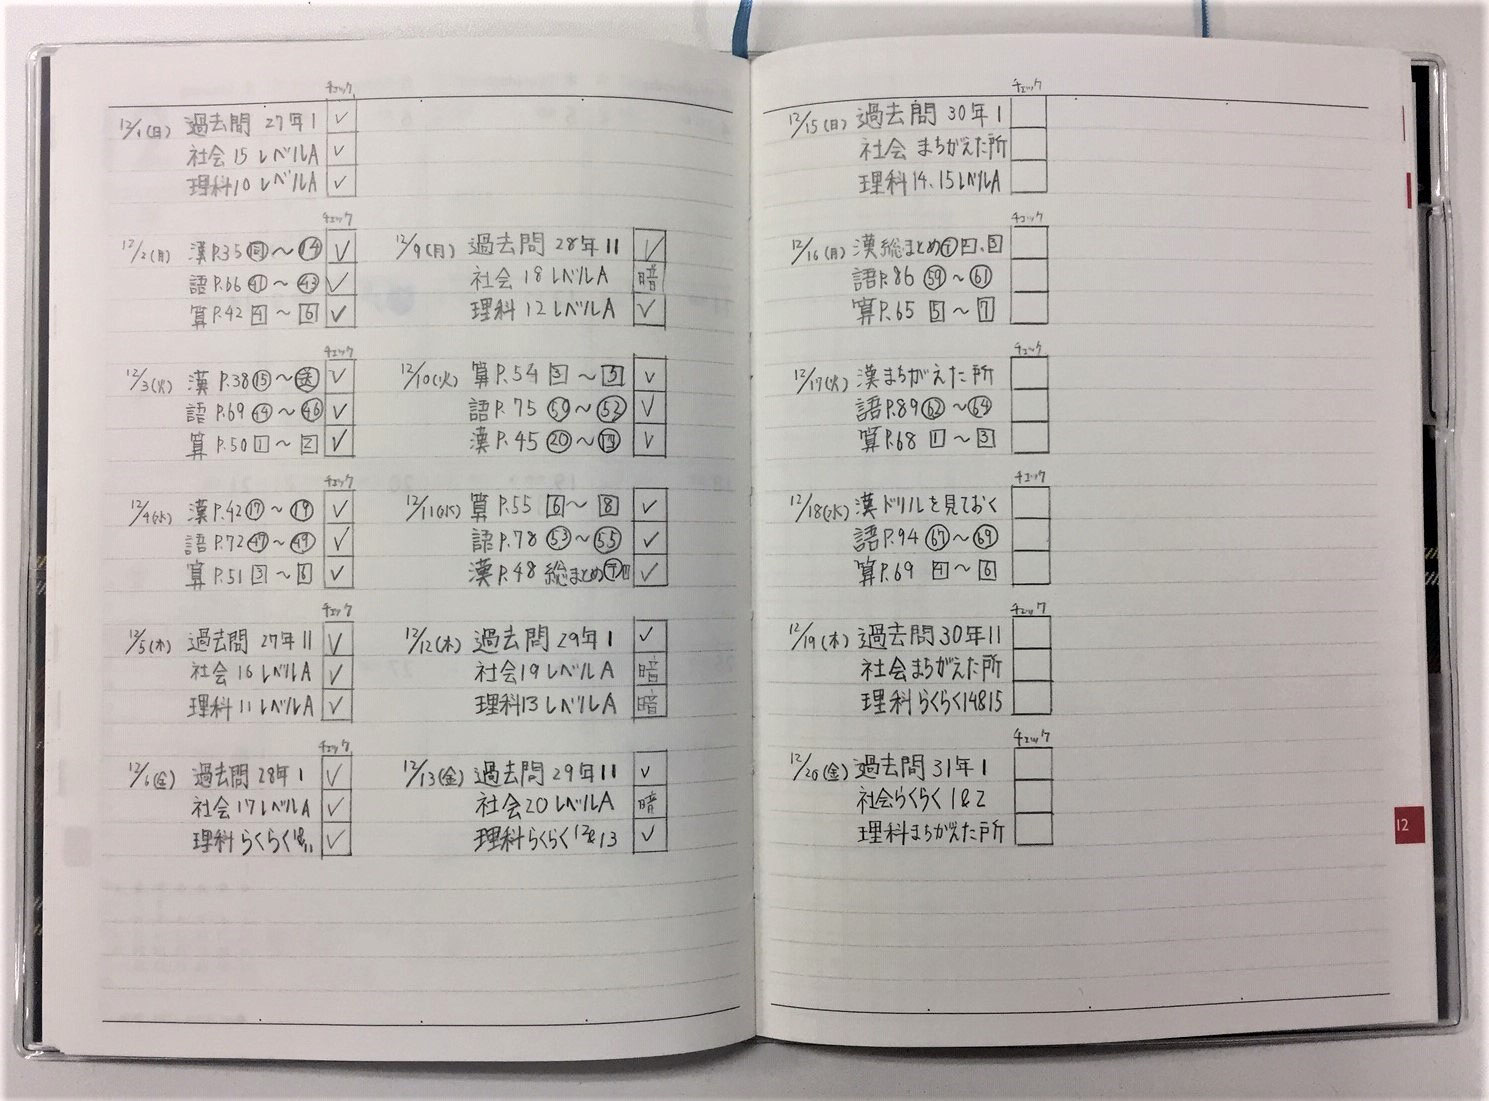 チェック
12/1(日) 過去問 27年1 ✓
社会15 レベルA ✓
理科10 レベルA ✓
チェック
12/2(月) 漢 P.35 ～⑭ ✓
語 P.66 ㊶～㊸ ✓
算 P.42 4～6 ✓
チェック
12/3(火) 漢 P.38 ⑮～ ✓
語 P.69 ㊹～㊻ ✓
算 P.50 1～2 ✓
チェック
12/4(水) 漢 P.42 ⑰～⑲ ✓
語 P.72 ㊼～㊾ ✓
算 P.51 3～6 ✓
チェック
12/5(木) 過去問 27年11 ✓
社会16 レベルA ✓
理科11 レベルA ✓
チェック
12/6(金) 過去問 28年1 ✓
社会17 レベルA ✓
理科 らくらく ✓
12/9(月) 過去問 28年11 ✓
社会18 レベルA 暗
理科12 レベルA ✓
12/10(火) 算 P.54 3～5 ✓
語 P.75 ㊿～52 ✓
漢 P.45 ⑳～ ✓
12/11(水) 算 P.55 6～8 ✓
語 P.78 53～55 ✓
漢 P.48 総まとめ ✓
12/12(木) 過去問 29年1 ✓
社会19 レベルA 暗
理科13 レベルA 暗
12/13(金) 過去問 29年11 ✓
社会20 レベルA 暗
理科 らくらく12&13 ✓
チェック
12/15(日) 過去問 30年1
社会 まちがえた所
理科14、15レベルA
チェック
12/16(月) 漢 総まとめ
語 P.86 59～61
算 P.65 5～7
チェック
12/17(火) 漢 まちがえた所
語 P.89 62～64
算 P.68 1～3
チェック
12/18(水) 漢ドリルを見ておく
語 P.94 67～69
算 P.69 4～6
チェック
12/19(木) 過去問 30年11
社会まちがえた所
理科らくらく14&15
チェック
12/20(金) 過去問 31年1
社会らくらく 1&2
理科まちがえた所
12